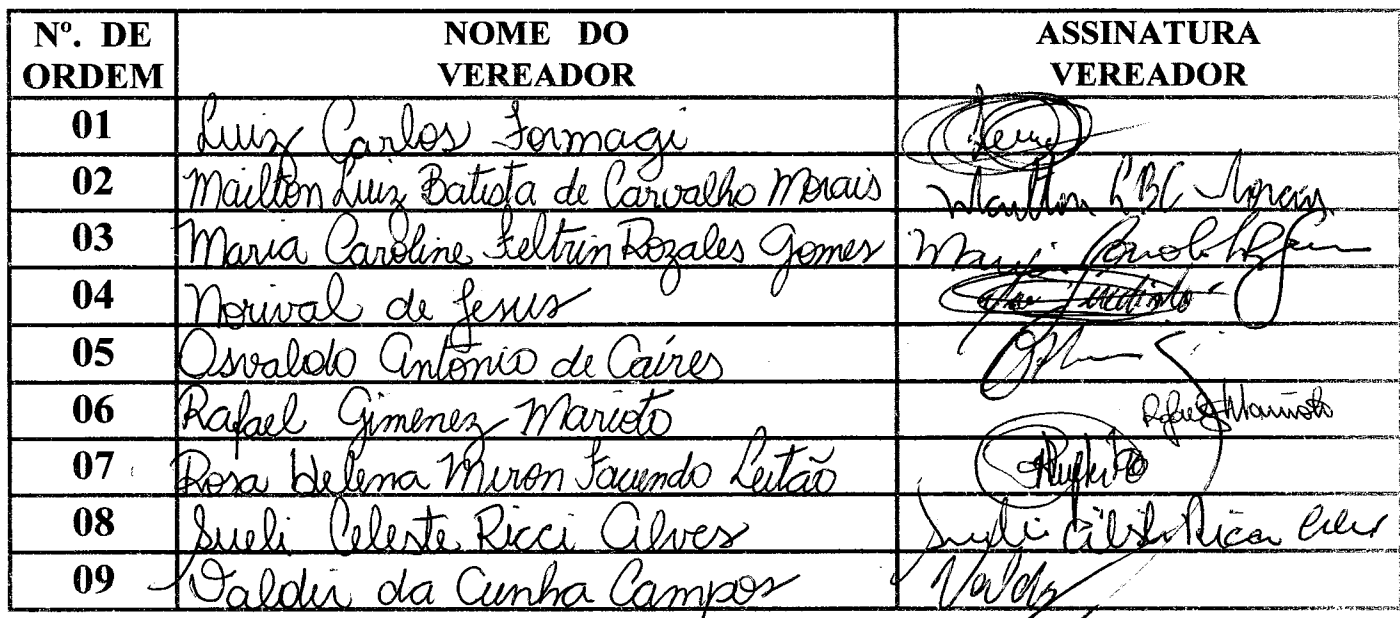 Nº. DE ORDEM NOME DO VEREADOR ASSINATURA VEREADOR
01 Luiz Carlos Formagi
02 Mailton Luiz Batista de Carvalho Morais Mailton LBC Morais
03 Maria Caroline Feltrin Rozales Gomes Maria
04 Norival de Jesus
05 Osvaldo Antônio de Caíres
06 Rafael Gimenez Marioto Rafael Marioto
07 Rosa Helena Miron Facundo Leitão
08 Sueli Celeste Ricci Alves Sueli Celeste Ricci Alves
09 Valdir da Cunha Campos Valdir